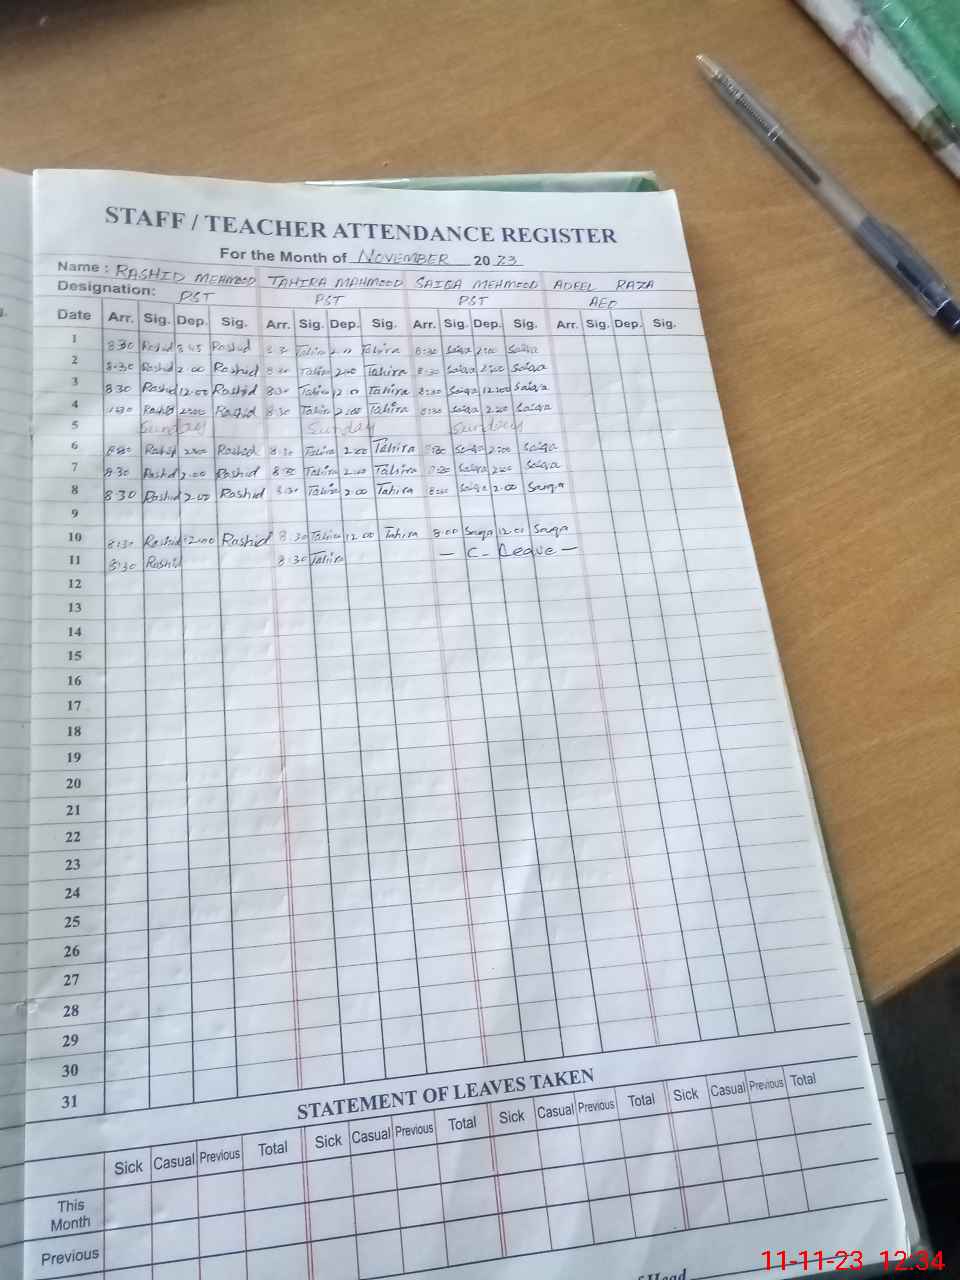 STAFF / TEACHER ATTENDANCE REGISTER
For the Month of NOVEMBER 20 23
Name : RASHID MEHMOOD TAHIRA MAHMOOD SAIQA MEHMOOD ADEEL RAZA
Designation: PST PST PST AEO
Date Arr. Sig. Dep. Sig. Arr. Sig. Dep. Sig. Arr. Sig. Dep. Sig. Arr. Sig. Dep. Sig.
1 8:30 Rashid Rashid Tahira Tahira 8:30 Saiqa 2:00 Saiqa
2 8:30 Rashid 2:00 Rashid 8:30 Tahira 2:00 Tahira 8:30 Saiqa 2:00 Saiqa
3 8:30 Rashid 12:00 Rashid 8:30 Tahira Tahira 8:30 Saiqa 12:00 Saiqa
4 Rashid 2:00 Rashid 8:30 Tahira 2:00 Tahira 8:30 Saiqa 2:00 Saiqa
5 Sunday Sunday Sunday
6 Rashid 2:00 Rashid 8:30 Tahira 2:00 Tahira Saiqa 2:00 Saiqa
7 8:30 Rashid 2:00 Rashid Tahira 2:00 Tahira Saiqa 2:00 Saiqa
8 8:30 Rashid 2:00 Rashid 8:30 Tahira 2:00 Tahira Saiqa 2:00 Saiqa
9
10 8:30 Rashid 12:00 Rashid 8:30 Tahira 12:00 Tahira 8:00 Saiqa Saiqa
11 8:30 Rashid 8:30 Tahira - C - Leave -
12
13
14
15
16
17
18
19
20
21
22
23
24
25
26
27
28
29
30
31
STATEMENT OF LEAVES TAKEN
Sick Casual Previous Total Sick Casual Previous Total Sick Casual Previous Total Sick Casual Previous Total
This
Month
Previous
Head
11-11-23 12:34